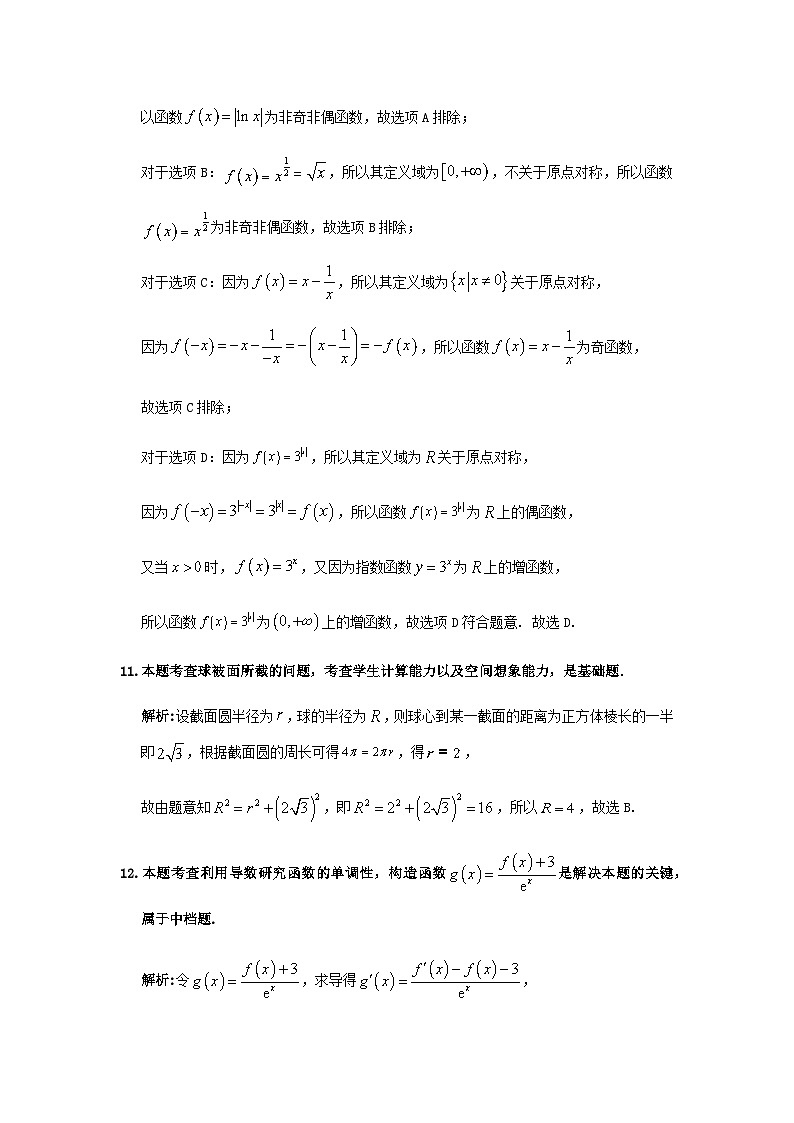 以函数 f(x)=|ln x| 为非奇非偶函数，故选项 A 排除；
对于选项 B：f(x)=x^{1/2}=√x，所以其定义域为[0,+∞)，不关于原点对称，所以函数
f(x)=x^{1/2}为非奇非偶函数，故选项 B 排除；
对于选项 C：因为 f(x)=x−1/x，所以其定义域为{x|x≠0}关于原点对称，
因为 f(−x)=−x−1/(−x)=−(x−1/x)=−f(x)，所以函数 f(x)=x−1/x 为奇函数，
故选项 C 排除；
对于选项 D：因为 f(x)=3^{|x|}，所以其定义域为 R 关于原点对称，
因为 f(−x)=3^{|−x|}=3^{|x|}=f(x)，所以函数 f(x)=3^{|x|}为 R 上的偶函数，
又当 x>0 时，f(x)=3^x，又因为指数函数 y=3^x 为 R 上的增函数，
所以函数 f(x)=3^{|x|}为(0,+∞)上的增函数，故选项 D 符合题意．故选 D.
11.本题考查球被面所截的问题，考查学生计算能力以及空间想象能力，是基础题.
解析:设截面圆半径为 r，球的半径为 R，则球心到某一截面的距离为正方体棱长的一半
即 2√3，根据截面圆的周长可得 4π=2πr，得 r=2，
故由题意知 R²=r²+(2√3)²，即 R²=2²+(2√3)²=16，所以 R=4，故选 B.
12.本题考查利用导数研究函数的单调性，构造函数 g(x)=(f(x)+3)/e^x 是解决本题的关键，
属于中档题.
解析:令 g(x)=(f(x)+3)/e^x，求导得 g′(x)=(f′(x)−f(x)−3)/e^x，